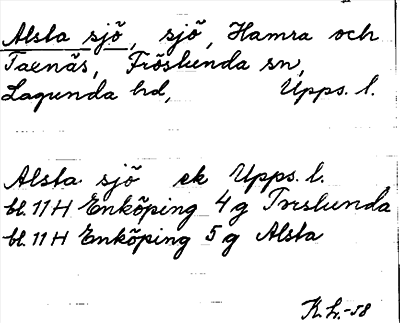 Alsta sjö, sjö, Hamra och
Taenäs, Fröslunda sn,
Lagunda hd, Upps. l.
Alsta sjö ek Upps. l.
bl. 11 H Enköping 4 g Torslunda
bl. 11 H Enköping 5 g Alsta
K.L.-58